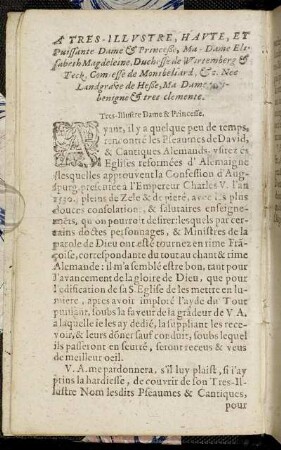 A TRES-ILLVSTRE, HAVTE, ET
Puissante Dame & Princesse, Ma-Dame Eli-
sabeth Magdeleine, Duchesse de Wirtemberg &
Teck, Comtesse de Montbeliard, &c. Nee
Landgrave de Hesse, Ma Dame
benigne & tres clemente.
Tres-Illustre Dame & Princesse.
Ayant, il y a quelque peu de temps,
rencontré les Pseaumes de David,
& Cantiques Alemands, usitez és
Eglises reformées d'Alemaigne
(lesquelles approuvent la Confession d'Aug-
spurg presentée a l'Empereur Charles V. l'an
1530. pleins de Zele & de pieté, avec des plus
douces consolations, & salutaires enseigne-
mẽts, qu'on pourroit desirer: lesquels par cer-
tains doctes personnages, & Ministres de la
parole de Dieu ont esté tournez en rime Frã-
çoise, correspondante du tout au chant & rime
Alemande: il m'a semblé estre bon, tant pour
l'avancement de la gloire de Dieu, que pour
l'edification de sa S. Eglise de les mettre en lu-
miere, apres avoir imploré l'ayde du Tout
puissant, soubs la faveur de la grãdeur de V. A.
a laquelle je les ay dedié, la suppliant les rece-
voir, & leurs dõner sauf conduit, soubs lequel
ils passeront en seurté, seront receus & veus
de meilleur oeil.
V. A. me pardonnera, s'il luy plaist, si i'ay
prins la hardiesse, de couvrir de son Tres-Il-
lustre Nom lesdits Pseaumes & Cantiques,
pour